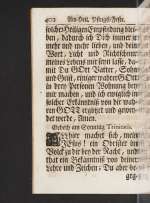 402 Am Heil. Pfingst-Feste.
solcher Heiligen Empfindung blei-
ben, dadurch ich Dich immer je
mehr und mehr lieben, und dein
Wort, Licht und Richtschnur
meines Lebens mir seyn lasse, da-
mit Du GOtt Vatter, Sohn
und Geist, einiger wahrer GOtt
in dreyen Personen Wohnung bey
mir machen, und ich ewiglich in
solcher Erkäntnüs von dir wah-
ren GOTT ergötzt und gewei-
det werde, Amen.
Gebeth am Sonntag Trinitatis.
HIerbier machet sich, mein
JEsus! ein Obrister am
Volck zu dir bey der Nacht, und
that ein Bekäntnüs von deiner
Lehre und Zeichen, Du aber